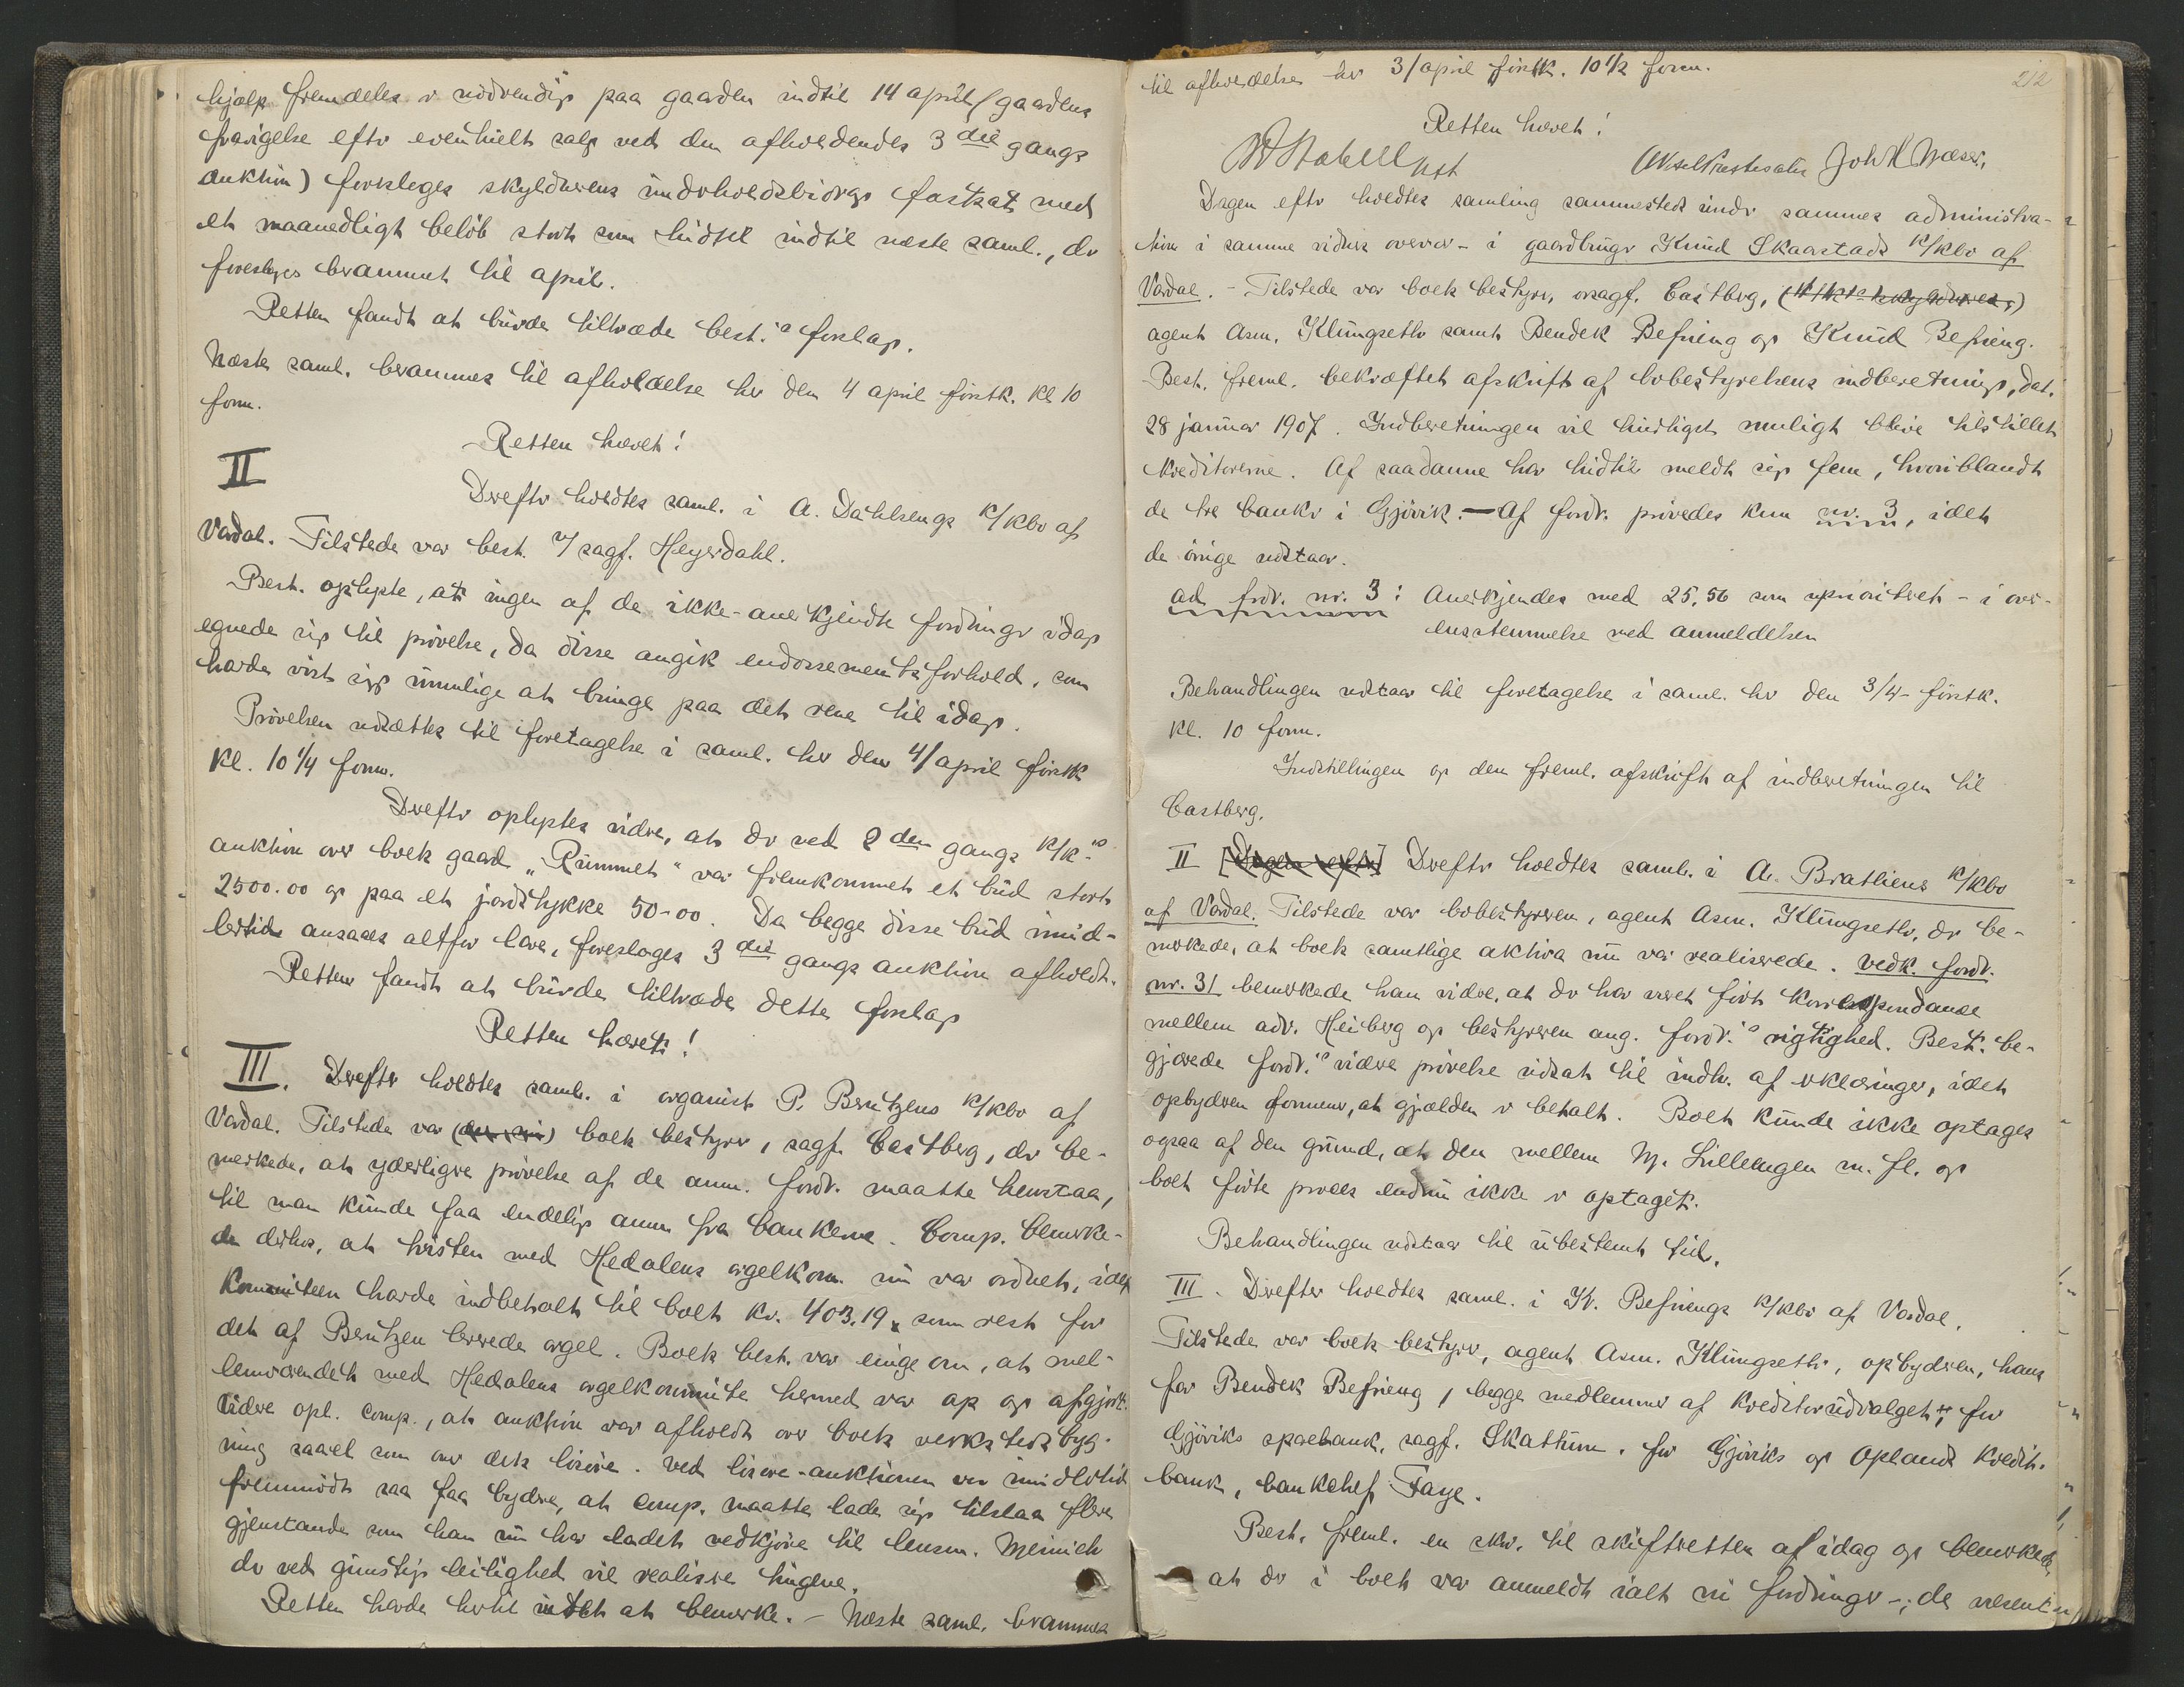 hjælp fremdeles er nødvendig paa gaarden indtil 14 april (gaardens
fravigelse efter eventuelt salg ved den afholdendes 3die gangs
auktion) foresloges skyldnerens underholdsbidrag fastsat med
et maanedligt beløb stort som hidtil indtil næste saml., der
foresloges berammet til april.
Retten fandt at burde tiltræde best.'s forslag.
Næste saml. berammes til afholdelse her den 4 april førstk. kl 10
form.
Retten hævet!
II
Derefter holdtes saml. i A. Dahlsengs k/kbo af
Vardal. Tilstede var best. o/sagf. Heyerdahl.
Best. oplyste, at ingen af de ikke-anerkjendte fordringer idag
egnede sig til prøvelse, da disse angik endossementsforhold, som
havde vist sig umulige at bringe paa det rene til idag.
Prøvelsen udsættes til foretagelse i saml. her den 4/april førstk
kl. 10 1/4 form.
Derefter oplystes videre, at der ved 2den gangs k/k's
auktion over boets gaard „Rummet" var fremkommet et bud stort
2500.00 og paa et jordstykke 50-00. Da begge disse bud imid-
lertid ansaaes altfor lave, foresloges 3die gangs auktion afholdt.
Retten fandt at burde tiltræde dette forslag
Retten hævet!
III. Derefter holdtes saml. i organist P. Berntzens k/kbo af
Vardal. Tilstede var boets bestyrer, sagf. Castberg, der be-
merkede, at yderligere prøvelse af de anm. fordr. maatte henstaa,
til man kunde faa endelig anm fra bankerne. Comp. bemerke-
de derhos, at tvisten med Hedalens orgelkom. nu var ordnet, idet
komiteen havde indbetalt til boet kr. 403.19, som rest for
det af Berntzen leverede orgel. Boets best. var enige om, at mel-
lemværendet med Hedalens orgelkomite hermed var op og afgjort.
Videre opl. comp., at auktion var afholdt over boets verkstedsbyg-
ning saavel som over dets løsøre. Ved løsøre-auktionen var imidlertid
fremmødt saa faa bydere, at comp. maatte lade sig tilslaa flere
gjenstande som han nu har ladet nedkjøre til lensm. Meinich
der ved gunstig leilighed vil realisere tingene.
Retten havde hertil intet at bemerke. – Næste saml. berammes
212
til afholdelse her 3/april førstk. 10 1/2 form.
Retten hævet!
Stabell kst Joh H Næser.
Dagen efter holdtes samling sammesteds under sammes administra-
tion i samme vidners overvær – i gaardbruger Knud Skaarstads k/kbo af
Vardal. – Tilstede var boets bestyrer, orsagf. Castberg,
agent Asm. Klungseth samt Bendek Befring og Knud Befring.
Best. freml. bekræftet afskrift af bobestyrelsens indberetning, dat.
28 januar 1907. Indberetningen vil hurtigst muligt blive tilstillet
kreditorerne. Af saadanne har hidtil meldt sig fem, hvoriblandt
de tre banker i Gjøvik. – Af fordr. prøvedes kun nr. 3, idet
de øvrige udstaar.
ad fordr. nr. 3: Anerkjendes med 25,56 som uprioritert – i over-
ensstemmelse med anmeldelsen
Behandlingen udstaar til foretagelse i saml. her den 3/4- førstk.
kl. 10 form.
Indstillingen og den freml. afskrift af indberetningen til
Castberg.
II [Dagen efter] Derefter holdtes saml. i A. Bratliens k/kbo
af Vardal. Tilstede var bobestyreren, agent Asm. Klungseth, der be-
merkede, at boets samtlige aktiva nu var realiserede. Vedk. fordr.
nr. 31 bemerkede han videre, at der har været ført korrespondance
mellem adv. Heiberg og bestyreren ang. fordr.'s rigtighed. Best. be-
gjærede fordr.'s videre prøvelse udsat til indh. af erklæringer, idet
opbyderen formener, at gjælden er betalt. Boet kunde ikke optages
ogsaa af den grund, at den mellem M. Lillengen m. fl. og
boet førte proces endnu ikke er optaget.
Behandlingen udstaar til ubestemt tid.
III. Derefter holdtes saml. i K. Befrings k/kbo af Vardal.
Tilstede var boets bestyrer, agent Asm. Klungseth, opbyderen, hans
far Bendek Befring, begge medlemmer af kreditorudvalget; for
Gjøviks sparebank, sagf. Skattum. for Gjøviks og Oplands kredit-
bank, bankchef Faye.
Best. freml. en skr. til skifteretten af idag og bemerkede,
at der i boet var anmeldt ialt ni fordringer –; de væsent-